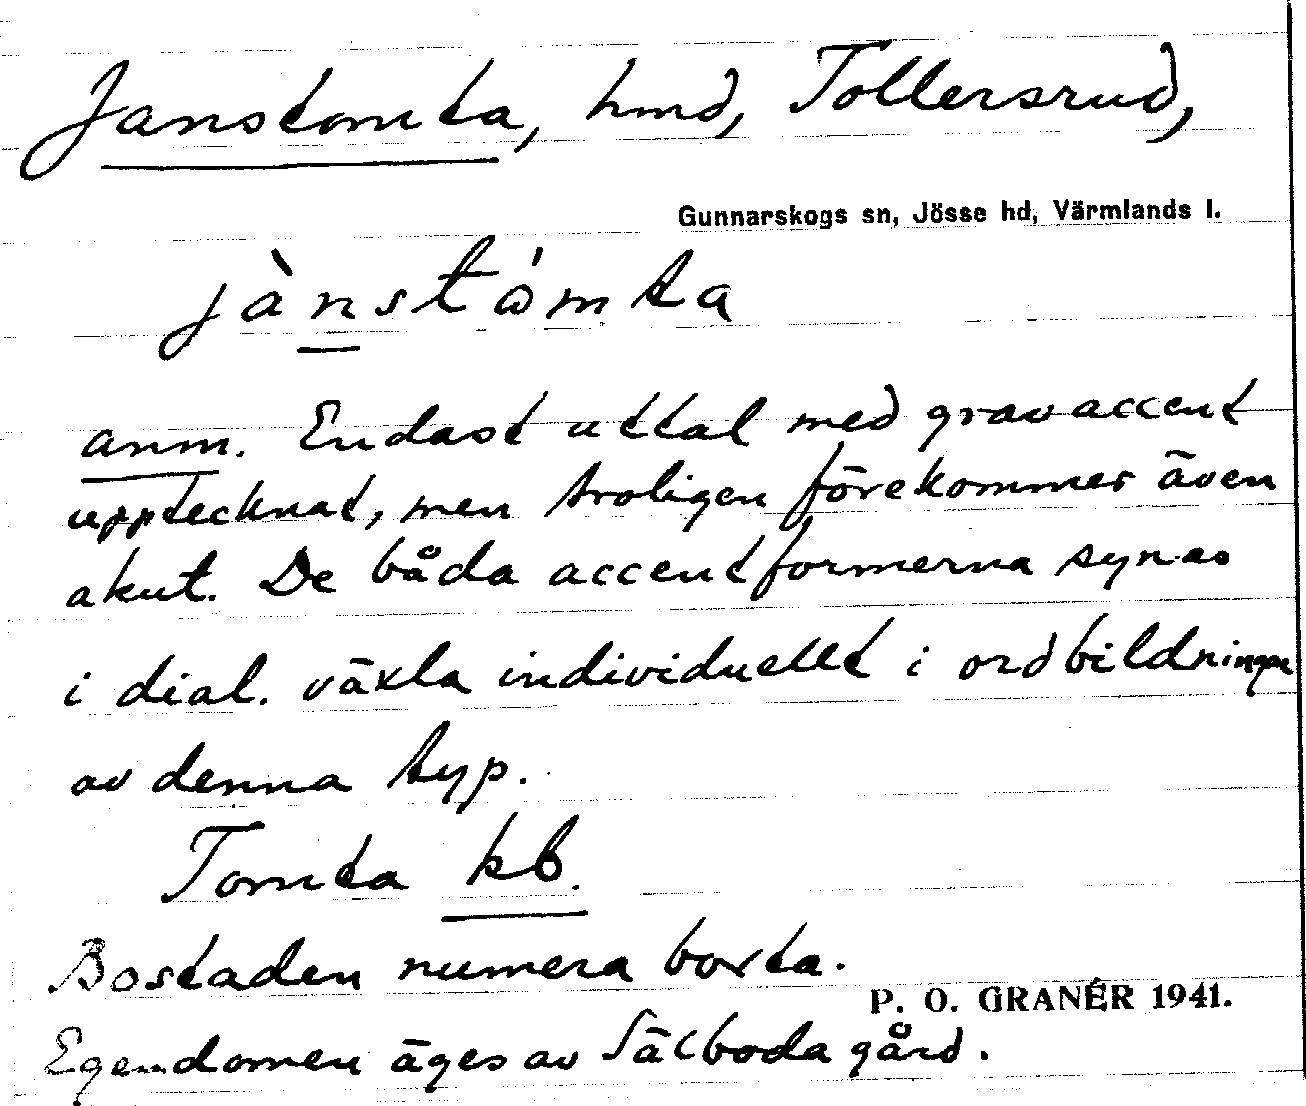 Janstomta, hmd, Tollersrud,
Gunnarskogs sn, Jösse hd, Värmlands l.
jànstómta
anm. Endast uttal med grav accent
upptecknat, men troligen förekommer även
akut. De båda accentformerna synas
i dial. växla individuellt i ordbildningar
av denna typ.
Tomta kb.
Bostaden numera borta.
P. O. GRANÉR 1941.
Egendomen äges av Sälboda gård.